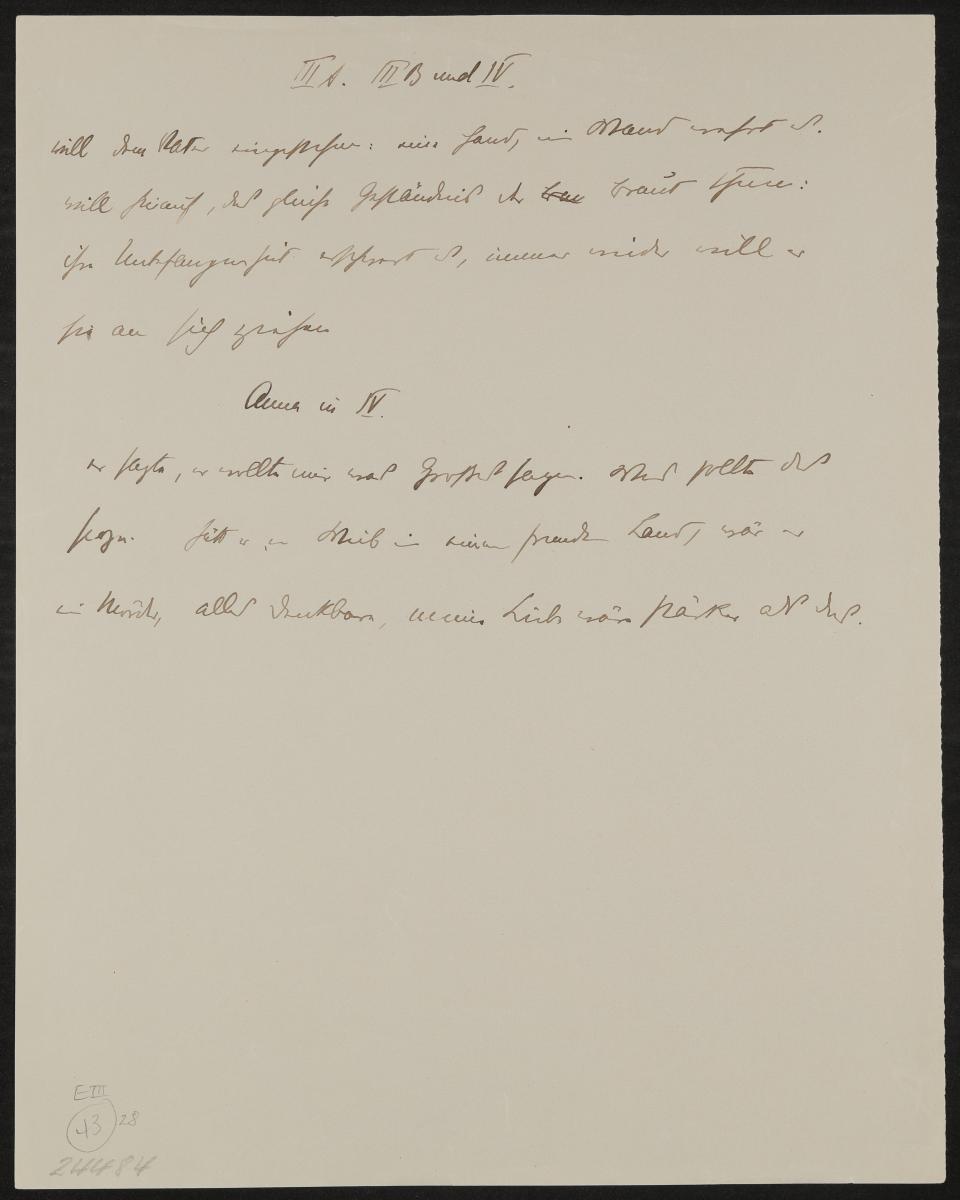 III A. III B und IV.
will dem Vater eingestehen: eine Hand, ein Mund wehrt es.
will hierauf, das gleiche Geständnis der Braut thuen:
ihre Unbefangenheit erschwert es, immer wieder will er
sie an sich ziehen
Anna in IV.
er sagte, er wollte mir was Großes sagen. Was sollte das
sagen. Hätt er ein Weib in einem fremden Land, wär er
ein Mörder, alles denkbare, meine Liebe wäre stärker als das.
E III
43 28
24484